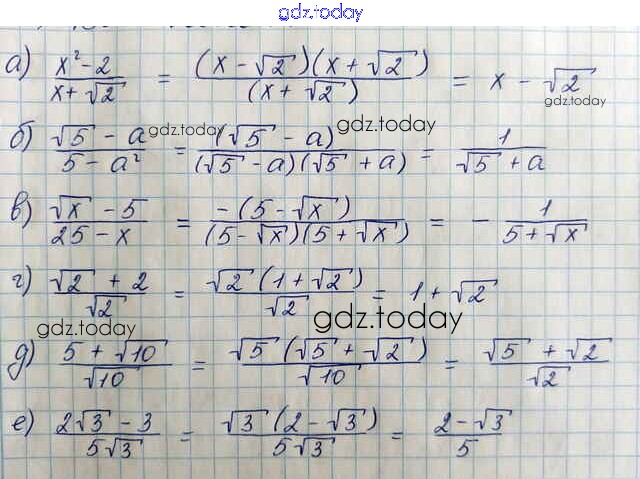 gdz.today
а) (x² - 2)/(x + √2) = ((x - √2)(x + √2))/((x + √2)) = x - √2
gdz.today
б) (√5 - a)/(5 - a²) = ((√5 - a))/((√5 - a)(√5 + a)) = 1/(√5 + a)
gdz.today
gdz.today
в) (√x - 5)/(25 - x) = (-(5 - √x))/((5 - √x)(5 + √x)) = - 1/(5 + √x)
г) (√2 + 2)/√2 = (√2(1 + √2))/√2 = 1 + √2
gdz.today
gdz.today
д) (5 + √10)/√10 = (√5(√5 + √2))/√10 = (√5 + √2)/√2
е) (2√3 - 3)/(5√3) = (√3(2 - √3))/(5√3) = (2 - √3)/5